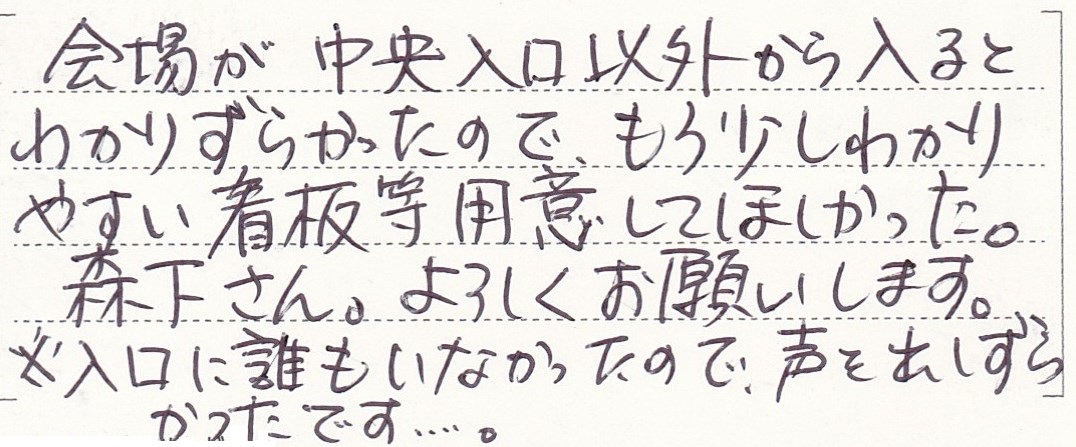 会場が中央入口以外から入ると
わかりずらかったので、もう少しわかり
やすい看板等用意してほしかった。
森下さん。よろしくお願いします。
※入口に誰もいなかったので、声を出しずら
かったです....。